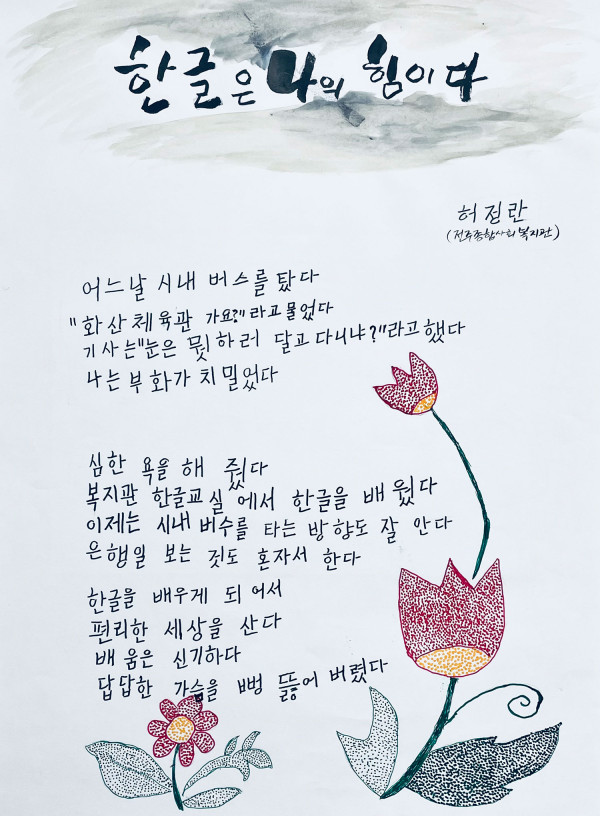 한글은 나의 힘이다
허질란
(전주종합사회복지관)
어느날 시내 버스를 탔다
"화산체육관 가요?"라고 물었다
기사는"눈은 뭣하러 달고다니냐?"라고했다
나는부화가치밀었다
심한 욕을 해 줬다
복지관 한글교실에서 한글을 배웠다
이제는 시내버수를 타는 방향도 잘 안다
은행일 보는 것도 혼자서 한다
한글을 배우게 되어서
편리한 세상을 산다
배움은 신기하다
답답한 가슴을 뻥 뚫어 버렸다